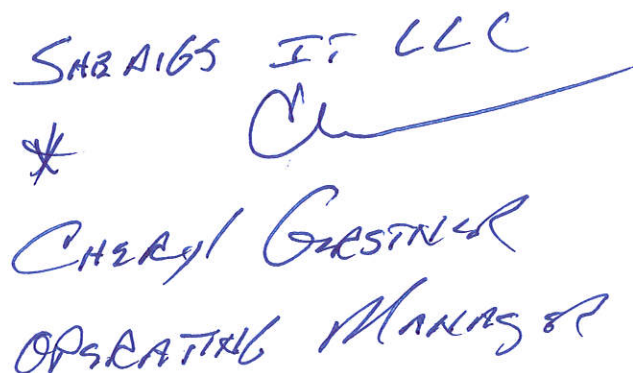 IT LLC
*
CHERYL GERSTNER
OPERATING MANAGER